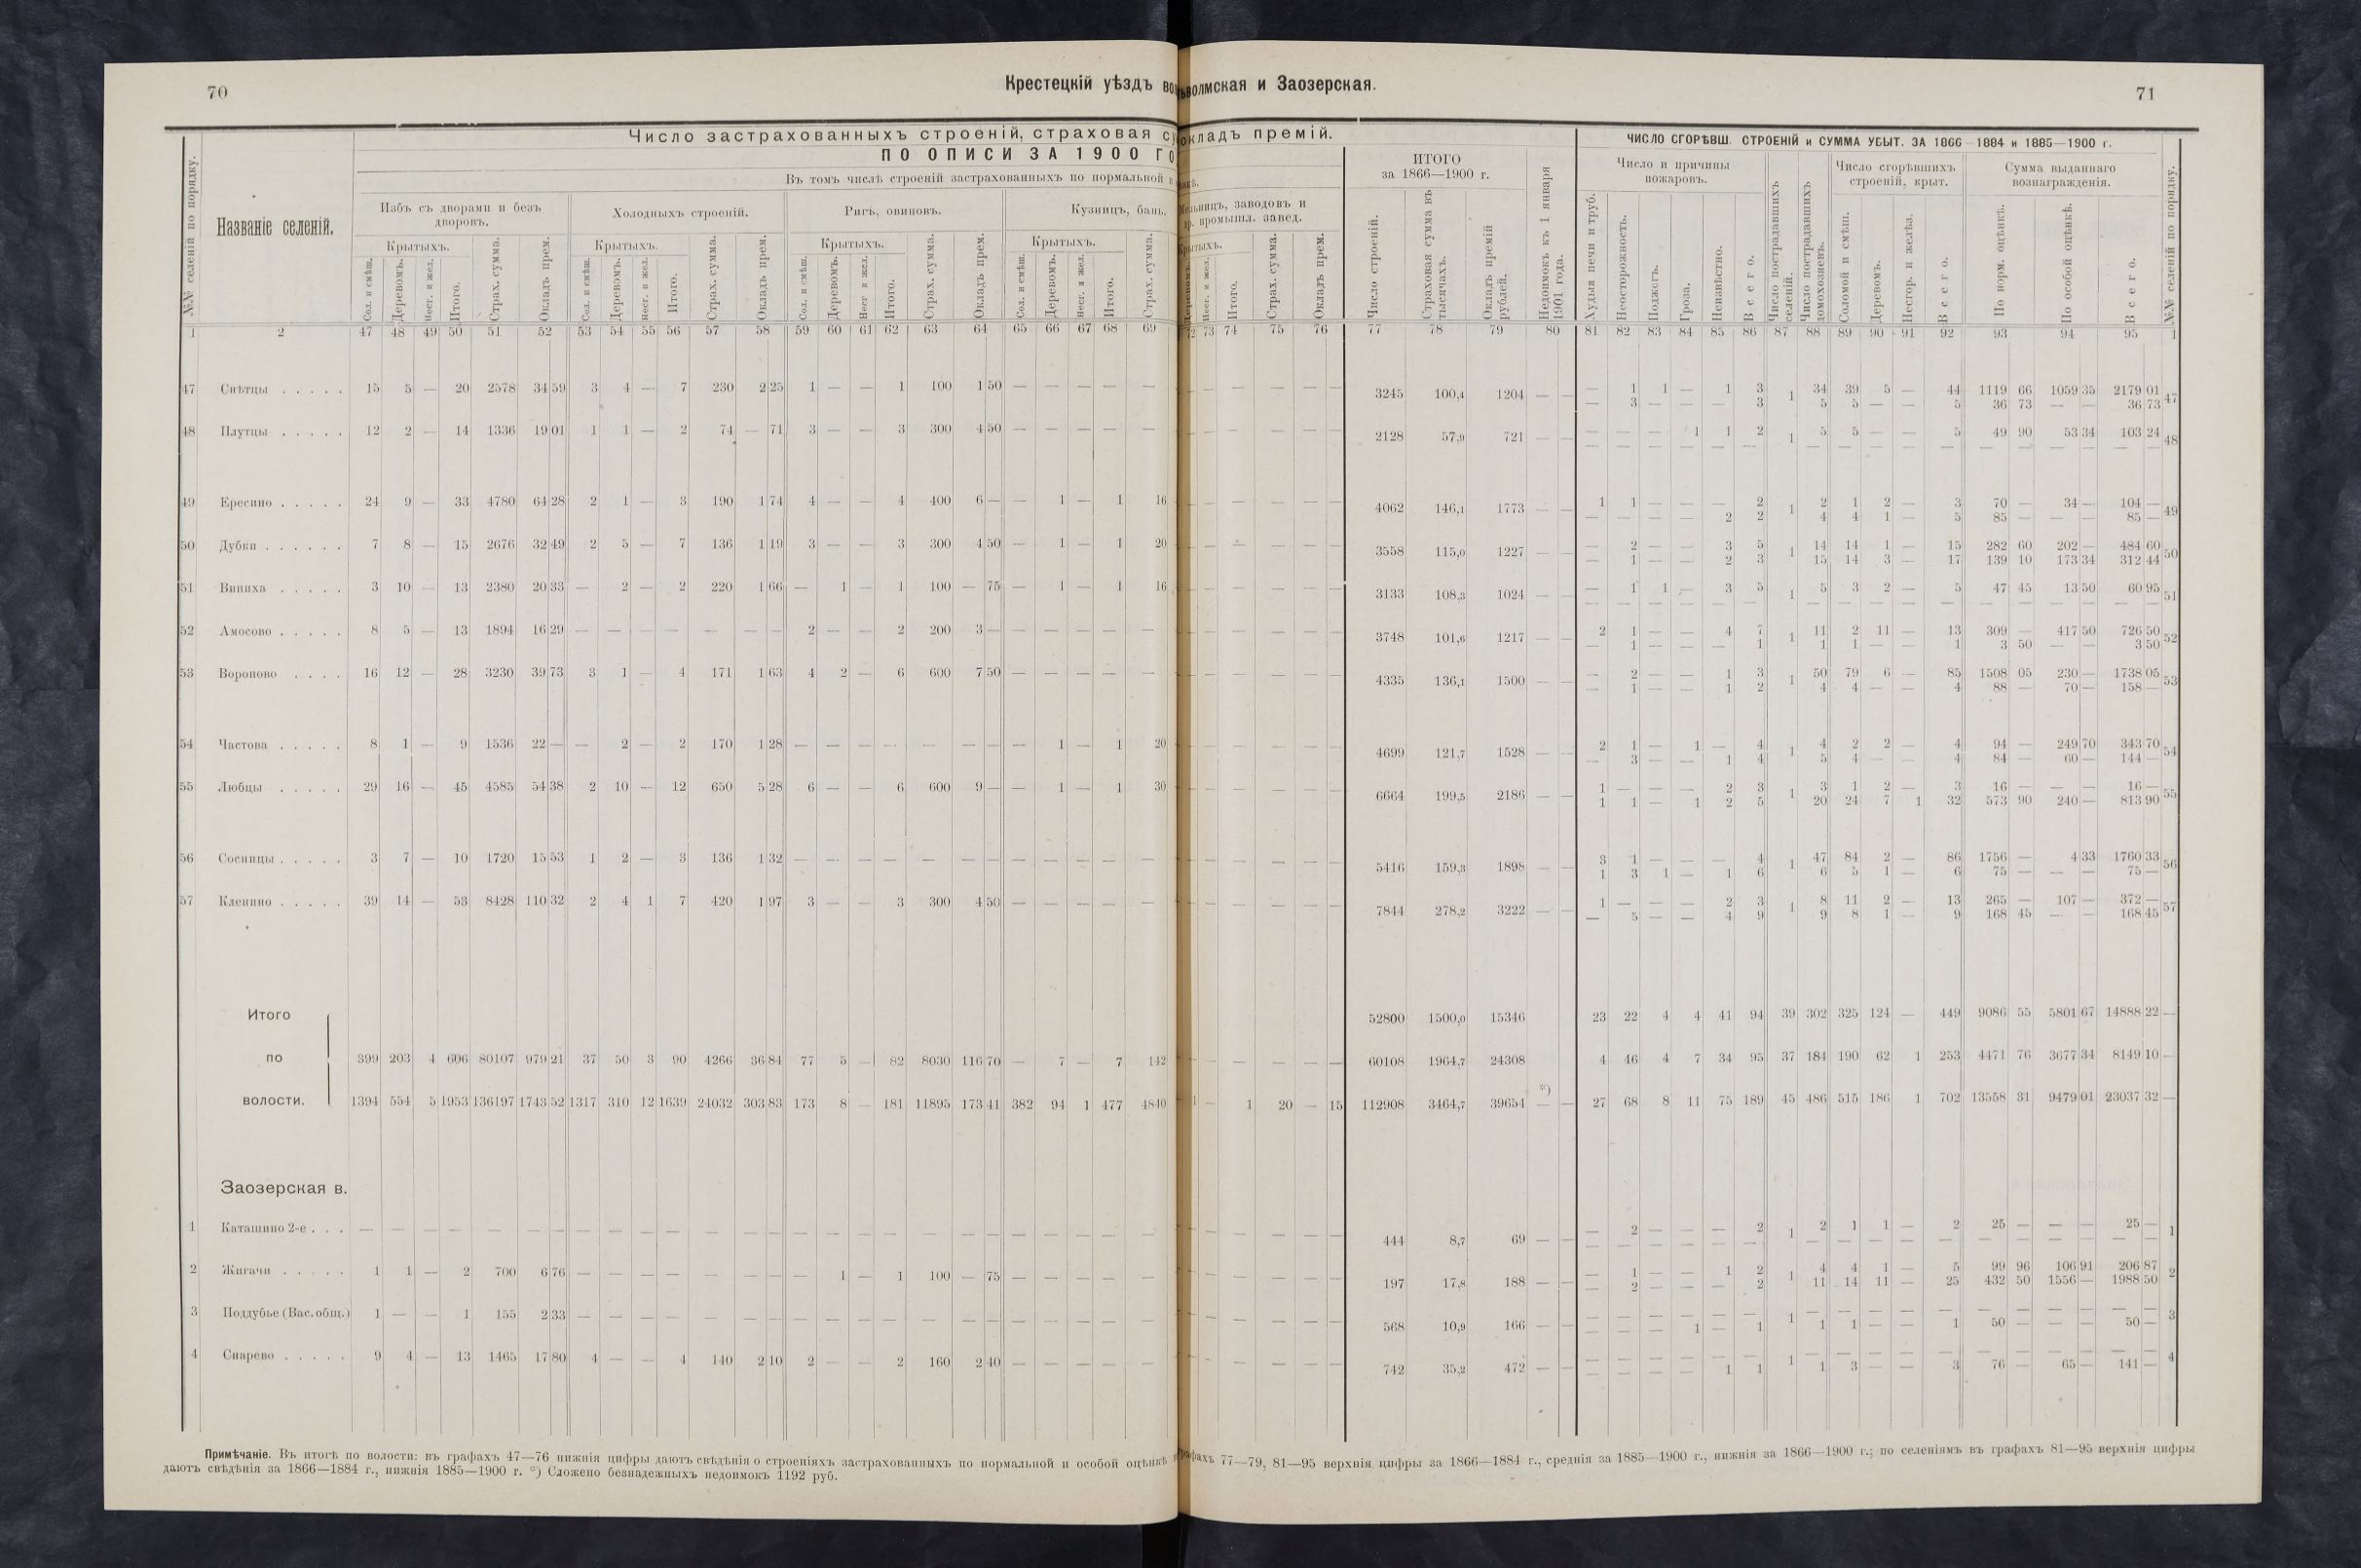 70
Крестецкій уѣздъ
волмская и Заозерская.
71
Число застрахованныхъ строеній, страховая
окладъ премій.
ПО ОПИСИ ЗА 1900
Въ томъ числѣ строеній застрахованныхъ по нормальной
№№ селеній по порядку.
Названіе селеній.
Избъ съ дворами и безъ
дворовъ.
Холодныхъ строеній.
Ригъ, овиновъ.
Кузницъ, бань.
Мельницъ, заводовъ и
др. промышл. завед.
Крытыхъ. Крытыхъ. Крытыхъ. Крытыхъ. Крытыхъ.
Сол. и смѣш. Деревомъ. Несг. и жел. Итого. Страх. сумма. Окладъ прем.
Сол. и смѣш. Деревомъ. Несг. и жел. Итого. Страх. сумма. Окладъ прем.
Сол. и смѣш. Деревомъ. Несг и жел. Итого. Страх. сумма. Окладъ прем.
Сол. и смѣш. Деревомъ. Несг. и жел. Итого. Страх. сумма.
Деревомъ. Несг. и жел. Итого. Страх. сумма. Окладъ прем.
ИТОГО
за 1866—1900 г.
Число строеній.
Страховая сумма въ тысячахъ.
Окладъ премій рублей.
Недоимокъ къ 1 января 1901 года.
ЧИСЛО СГОРѢВШ. СТРОЕНІЙ и СУММА УБЫТ. ЗА 1866—1884 и 1885—1900 г.
Число и причины
пожаровъ.
Худыя печи и труб. Неосторожность. Поджегъ. Гроза. Неизвѣстно. Всего.
Число пострадавшихъ селеній.
Число пострадавшихъ домохозяевъ.
Число сгорѣвшихъ
строеній, крыт.
Соломой и смѣш. Деревомъ. Нестор. и желѣз. Всего.
Сумма выданнаго
вознагражденія.
По норм. оцѣнкѣ. По особой оцѣнкѣ. Всего.
№№ селеній по порядку.
1 2 47 48 49 50 51 52 53 54 55 56 57 58 59 60 61 62 63 64 65 66 67 68 69 72 73 74 75 76 77 78 79 80 81 82 83 84 85 86 87 88 89 90 91 92 93 94 95 1
47 Снѣтцы . . . . . 15 5 — 20 2578 34 59 3 4 — 7 230 2 25 1 — — 1 100 1 50 — — — — — — — — — — 3245 100,4 1204 — — — 1 1 — 1 3 1 34 39 5 — 44 1119 66 1059 35 2179 01 47
— 3 — — — 3 5 5 — — 5 36 73 — — 36 73
48 Плутцы . . . . . 12 2 — 14 1336 19 01 1 1 — 2 74 — 71 3 — — 3 300 4 50 — — — — — — — — — — 2128 57,9 721 — — — — — 1 1 2 1 5 5 — — 5 49 90 53 34 103 24 48
— — — — — — — — — — — — — — — — —
49 Ересино . . . . . 24 9 — 33 4780 64 28 2 1 — 3 190 1 74 4 — — 4 400 6 — — 1 — 1 16 — — — — — 4062 146,1 1773 — — 1 1 — — — 2 1 2 1 2 — 3 70 — 34 — 104 — 49
— — — — 2 2 4 4 1 — 5 85 — — — 85 —
50 Дубки . . . . . . 7 8 — 15 2676 32 49 2 5 — 7 136 1 19 3 — — 3 300 4 50 — 1 — 1 20 — — — — — 3558 115,0 1227 — — — 2 — — 3 5 1 14 14 1 — 15 282 60 202 — 484 60 50
— 1 — — 2 3 15 14 3 — 17 139 10 173 34 312 44
51 Виниха . . . . . 3 10 — 13 2380 20 33 — 2 — 2 220 1 66 — 1 — 1 100 — 75 — 1 — 1 16 — — — — — 3133 108,3 1024 — — — 1 1 — 3 5 1 5 3 2 — 5 47 45 13 50 60 95 51
— — — — — — — — — — — — — — — — —
52 Амосово . . . . . 8 5 — 13 1894 16 29 — — — — — — — 2 — — 2 200 3 — — — — — — — — — — — 3748 101,6 1217 — — 2 1 — — 4 7 1 11 2 11 — 13 309 — 417 50 726 50 52
— 1 — — — 1 1 1 — — 1 3 50 — — 3 50
53 Вороново . . . . 16 12 — 28 3230 39 73 3 1 — 4 171 1 63 4 2 — 6 600 7 50 — — — — — — — — — — 4335 136,1 1500 — — — 2 — — 1 3 1 50 79 6 — 85 1508 05 230 — 1738 05 53
— 1 — — 1 2 4 4 — — 4 88 — 70 — 158 —
54 Частова . . . . . 8 1 — 9 1536 22 — — 2 — 2 170 1 28 — — — — — — — — 1 — 1 20 — — — — — 4699 121,7 1528 — — 2 1 — 1 — 4 1 4 2 2 — 4 94 — 249 70 343 70 54
— 3 — — 1 4 5 4 — — 4 84 — 60 — 144 —
55 Любцы . . . . . 29 16 — 45 4585 54 38 2 10 — 12 650 5 28 6 — — 6 600 9 — — 1 — 1 30 — — — — — 6664 199,5 2186 — — 1 — — — 2 3 1 3 1 2 — 3 16 — — — 16 — 55
1 1 — 1 2 5 20 24 7 1 32 573 90 240 — 813 90
56 Сосницы . . . . . 3 7 — 10 1720 15 53 1 2 — 3 136 1 32 — — — — — — — — — — — — — — — — — 5416 159,3 1898 — — 3 1 — — — 4 1 47 84 2 — 86 1756 — 4 33 1760 33 56
1 3 1 — 1 6 6 5 1 — 6 75 — — — 75 —
57 Кленино . . . . . 39 14 — 53 8428 110 32 2 4 1 7 420 1 97 3 — — 3 300 4 50 — — — — — — — — — — 7844 278,2 3222 — — 1 — — — 2 3 1 8 11 2 — 13 265 — 107 — 372 — 57
— 5 — — 4 9 9 8 1 — 9 168 45 — — 168 45
Итого 52800 1500,0 15346 23 22 4 4 41 94 39 302 325 124 — 449 9086 55 5801 67 14888 22 —
по 399 203 4 606 80107 979 21 37 50 3 90 4266 36 84 77 5 — 82 8030 116 70 — 7 — 7 142 — — — — — 60108 1964,7 24308 4 46 4 7 34 95 37 184 190 62 1 253 4471 76 3677 34 8149 10 —
волости. 1394 554 5 1953 136197 1743 52 1317 310 12 1639 24032 303 83 173 8 — 181 11895 173 41 382 94 1 477 4840 1 — 1 20 — 15 112908 3464,7 39654 *) — — 27 68 8 11 75 189 45 486 515 186 1 702 13558 31 9479 01 23037 32 —
Заозерская в.
1 Каташино 2-е . . . — — — — — — — — — — — — — — — — — — — — — — — — — — — — — 444 8,7 69 — — — 2 — — — 2 1 2 1 1 — 2 25 — — — 25 — 1
— — — — — — — — — — — — — — — — —
2 Жигачи . . . . . 1 1 — 2 700 6 76 — — — — — — — 1 — 1 100 — 75 — — — — — — — — — — 197 17,8 188 — — — 1 — — 1 2 1 4 4 1 — 5 99 96 106 91 206 87 2
— 2 — — — 2 11 14 11 — 25 432 50 1556 — 1988 50
3 Поддубье (Вас. общ.) 1 — — 1 155 2 33 — — — — — — — — — — — — — — — — — — — — — — 568 10,9 166 — — — — — — — — 1 — — — — — — — — — — — 3
— — — 1 — 1 1 1 — — 1 50 — — — 50 —
4 Снарево . . . . . 9 4 — 13 1465 17 80 4 — — 4 140 2 10 2 — — 2 160 2 40 — — — — — — — — — — 742 35,2 472 — — — — — — — — 1 — — — — — — — — — — — 4
— — — — 1 1 1 3 — — 3 76 — 65 — 141 —
Примѣчаніе. Въ итогѣ по волости: въ графахъ 47—76 нижнія цифры даютъ свѣдѣнія о строеніяхъ застрахованныхъ по нормальной и особой оцѣнкѣ графахъ 77—79, 81—95 верхнія цифры за 1866—1884 г., среднія за 1885—1900 г., нижнія за 1866—1900 г.; по селеніямъ въ графахъ 81—95 верхнія цифры
даютъ свѣдѣнія за 1866—1884 г., нижнія 1885—1900 г. *) Сложено безнадежныхъ недоимокъ 1192 руб.